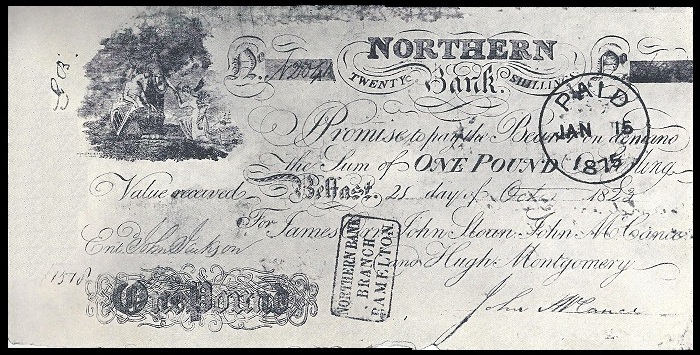 No.
NORTHERN
No.
TWENTY SHILLINGS
Bank.
I Promise to pay the Bearer on demand
the Sum of ONE POUND Sterling
PAID
JAN 15
1875
Value received Belfast. 21 day of Octr 1822
For James Orr John Sloan John McCance
and Hugh Montgomery
Entd. John Jackson
NORTHERN BANK
BRANCH
RAMELTON
1518
One Pound
John McCance